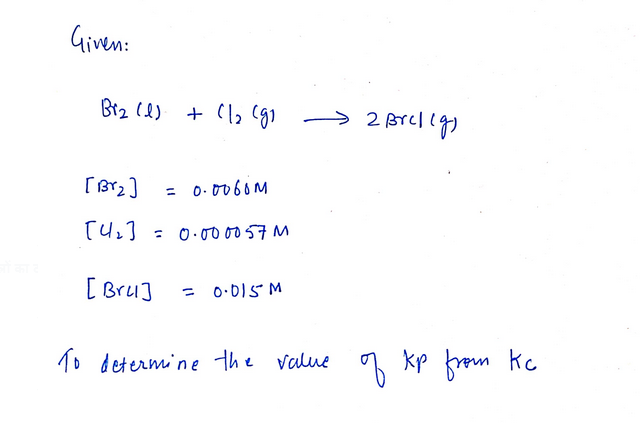 Given:
Br2 (l) + Cl2 (g) ⟶ 2 BrCl (g)
[Br2] = 0.0060M
[Cl2] = 0.000057 M
[BrCl] = 0.015 M
To determine the value of Kp from Kc